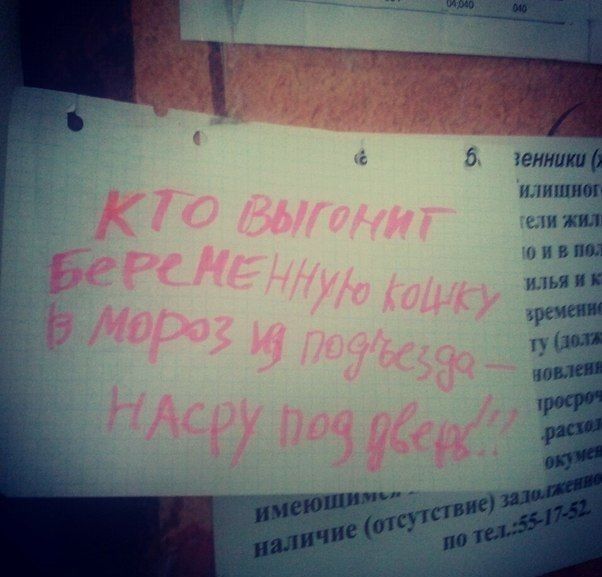 04,040 040
КТО ВЫГОНИТ
БЕРЕМЕННУЮ КОШКУ
В МОРОЗ ИЗ ПОДЪЕЗДА —
НАСРУ ПОД ДВЕРЬ!!!
венники (
илищног
ели жил
о и в по
илья и к
временно
ту (долж
новлен
просроч
расхо
окумен
имеющимся
наличие (отсутствие) задолженно
по тел.:55-17-52.